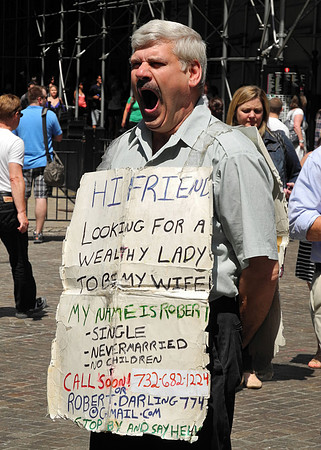 HI FRIEND
LOOKING FOR A
WEALTHY LADY
TO BE MY WIFE
MY NAME IS ROBERT
-SINGLE
-NEVER MARRIED
-NO CHILDREN
CALL SOON! 732-682-1224
OR
ROBERT.DARLING774
@GMAIL.COM
STOP BY AND SAY HELLO